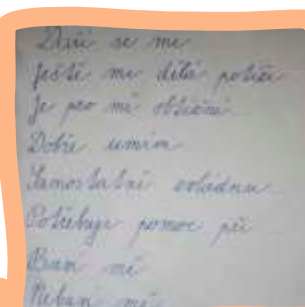 Daří se mi
Ještě mi dělá potíže
Je pro mě obtížné
Dobře umím
Samostatně zvládnu
Potřebuji pomoc při
Baví mě
Nebaví mě